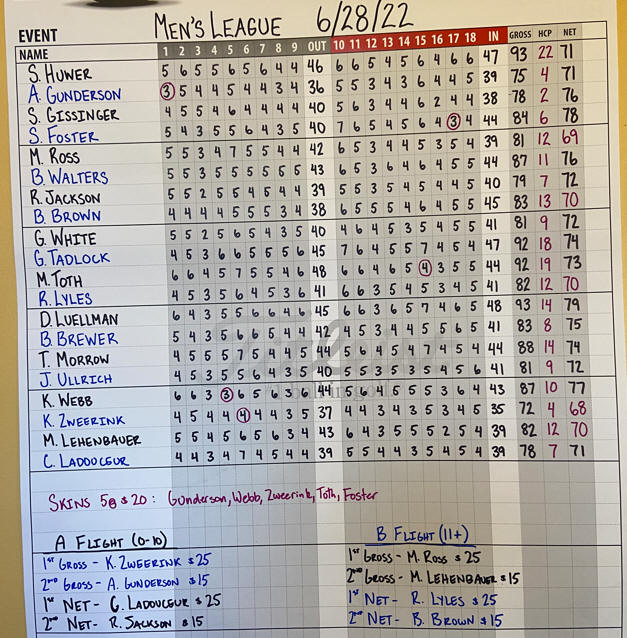 EVENT MEN'S LEAGUE 6/28/22
NAME 1 2 3 4 5 6 7 8 9 OUT 10 11 12 13 14 15 16 17 18 IN GROSS HCP NET
S. HUWER 5 6 5 5 6 5 6 4 4 46 6 6 5 4 5 4 6 6 5 47 93 22 71
A. GUNDERSON 3 5 4 4 5 4 4 3 4 36 5 5 3 4 3 6 4 4 5 39 75 4 71
S. GISSINGER 4 5 5 4 6 4 4 4 4 40 5 6 3 4 4 6 2 4 4 38 78 2 76
S. FOSTER 5 4 3 5 5 6 4 3 5 40 7 6 5 4 5 6 4 3 4 44 84 6 78
M. ROSS 5 5 3 4 7 5 5 4 4 42 6 5 3 4 4 5 3 5 4 39 81 12 69
B. WALTERS 5 5 3 5 5 5 5 5 5 43 6 5 3 6 4 6 4 5 5 44 87 11 76
R. JACKSON 5 5 2 5 5 4 5 4 4 39 5 5 3 5 4 5 4 4 5 40 79 7 72
B. BROWN 4 4 4 4 5 5 5 3 4 38 6 5 5 5 4 6 4 5 5 45 83 13 70
G. WHITE 5 5 2 5 6 5 4 3 5 40 4 6 4 5 3 5 4 5 5 41 81 9 72
G. TADLOCK 4 5 3 6 6 5 5 5 6 45 7 6 4 5 5 7 4 5 4 47 92 18 74
M. TOTH 6 6 4 5 7 5 5 4 6 48 6 6 4 6 5 4 3 5 5 44 92 19 73
R. LYLES 4 5 3 5 6 4 5 3 6 41 6 6 3 5 4 5 3 4 5 41 82 12 70
D. LUELLMAN 6 4 3 5 5 6 6 4 6 45 6 6 3 6 5 7 4 6 5 48 93 14 79
B. BREWER 5 4 3 5 6 6 5 4 4 42 4 5 3 4 4 5 5 6 5 41 83 8 75
T. MORROW 4 5 5 5 7 5 4 4 5 44 5 6 4 5 4 7 4 5 4 44 88 14 74
J. ULLRICH 4 5 3 5 5 6 4 3 5 40 5 5 3 5 3 5 4 5 6 41 81 9 72
K. WEBB 6 6 3 3 6 5 6 3 6 44 5 6 4 5 5 5 3 6 4 43 87 10 77
K. ZWEERINK 4 5 4 4 4 4 4 3 5 37 4 4 3 4 3 5 3 4 5 35 72 4 68
M. LEHENBAUER 5 5 4 5 6 5 6 3 4 43 6 4 3 5 5 5 2 5 4 39 82 12 70
C. LADOUCEUR 4 4 3 4 7 4 5 4 4 39 5 5 4 4 3 5 4 5 4 39 78 7 71
SKINS 5@ $20: Gunderson, Webb, Zweerink, Toth, Foster
A FLIGHT (0-10) B FLIGHT (11+)
1st GROSS - K. ZWEERINK $25 1st GROSS - M. ROSS $25
2nd GROSS - A. GUNDERSON $15 2nd GROSS - M. LEHENBAUER $15
1st NET - C. LADOUCEUR $25 1st NET - R. LYLES $25
2nd NET - R. JACKSON $15 2nd NET - B. BROWN $15